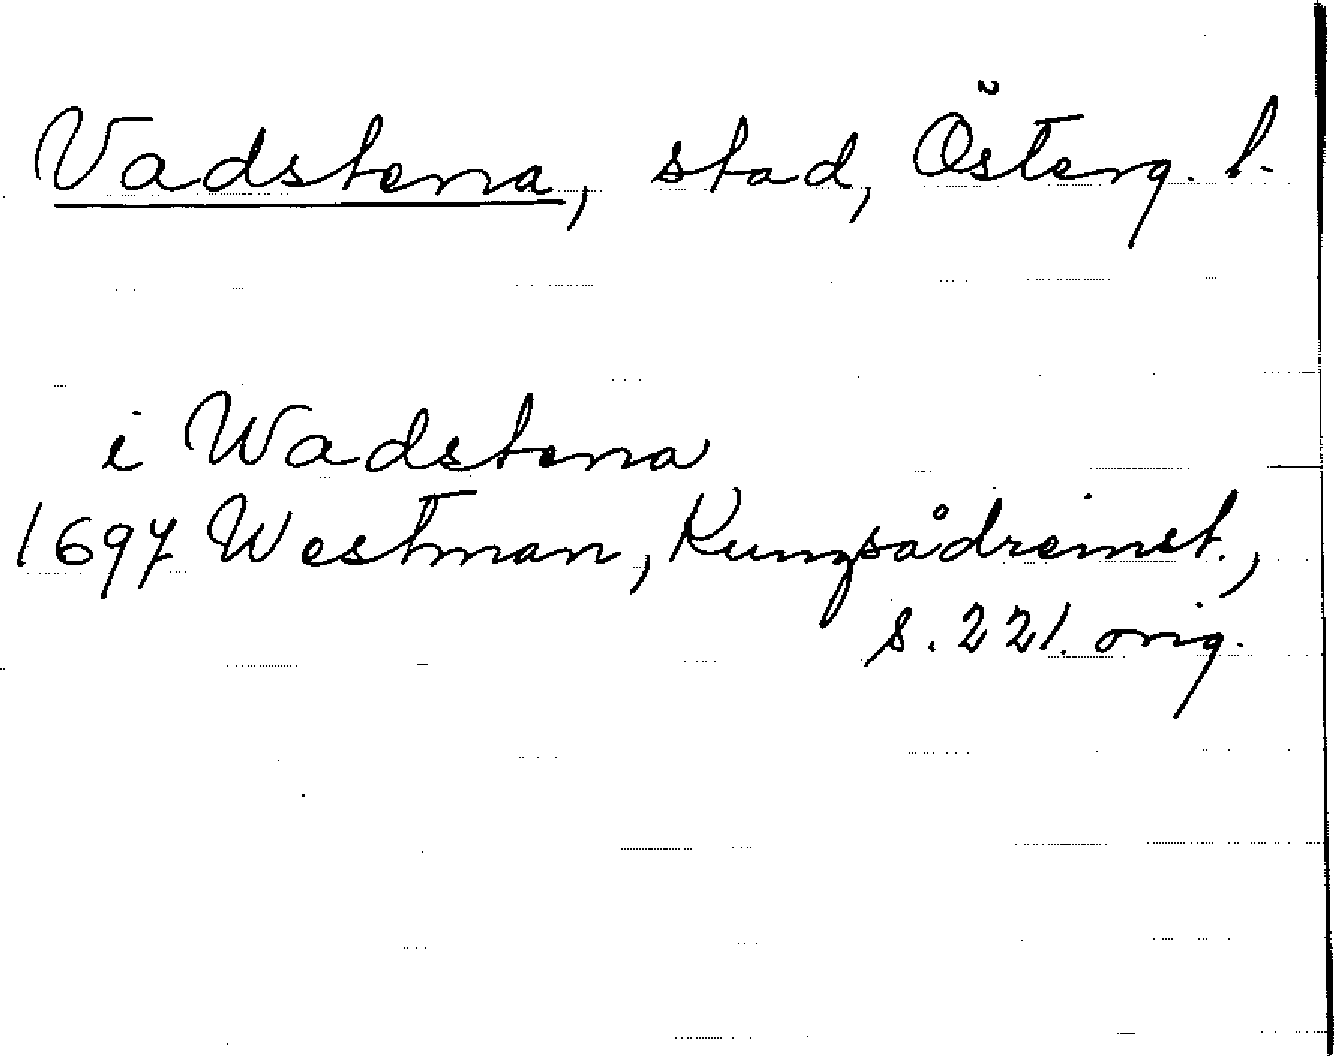 Vadstena, stad, Österg. l.
i Wadstena
1697 Westman, Kungsådreinst.,
s. 221. orig.